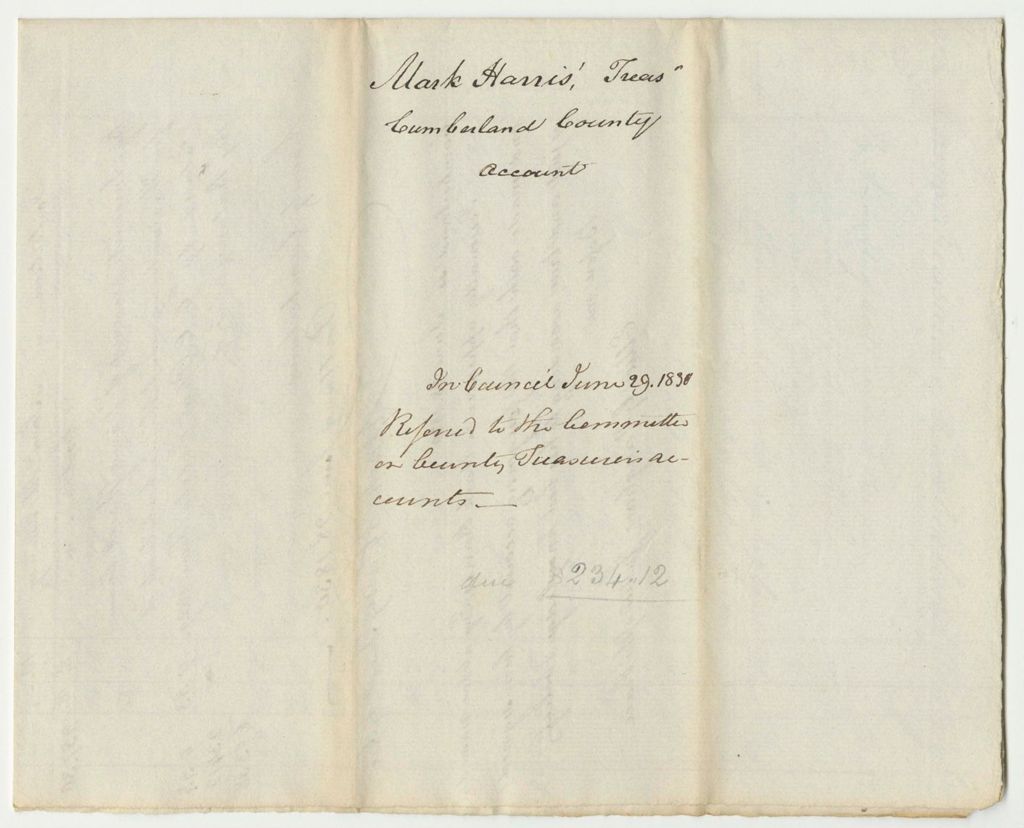 Mark Harris', Treas"
Cumberland County
account
In Council June 29. 1830
Referred to the Committee
on County Treasurers ac-
counts.
due $234.12